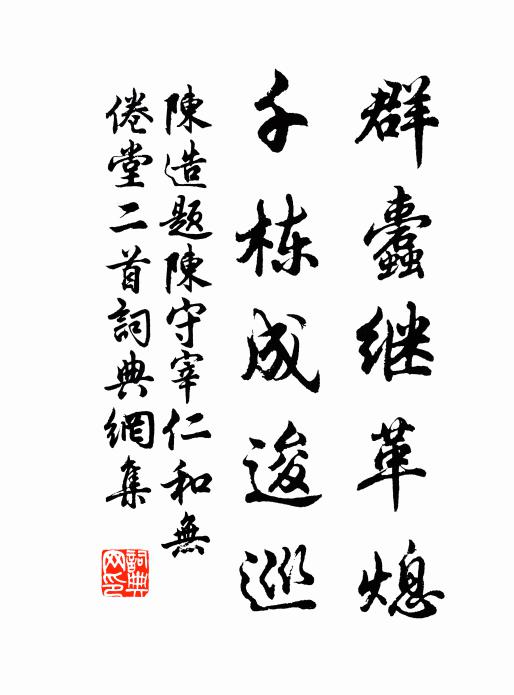 群蠹继革熄
千栋成逡巡
陳造題陳守宰仁和無
倦堂二首詞典網集
詞典网印